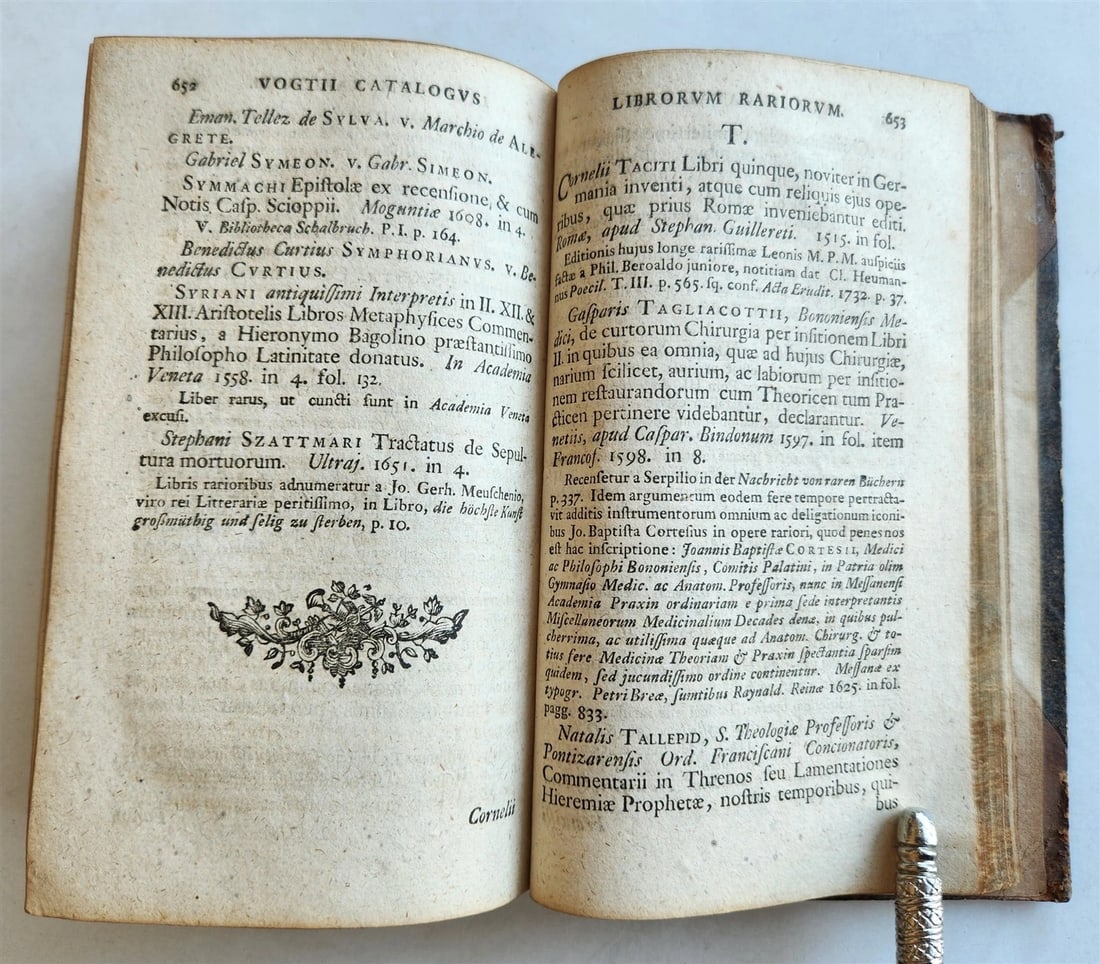 652 VOGTII CATALOGVS
Eman. Tellez de SYLVA. v. Marchio de ALE-
GRETE.
Gabriel SYMEON. v. Gabr. SIMEON.
SYMMACHI Epiſtolæ ex recenſione, & cum
Notis Caſp. Scioppii. Moguntiæ 1608. in 4.
V. Bibliotheca Schalbruch. P. I. p. 164.
Benedictus Curtius SYMPHORIANVS. v. Be-
nedictus CVRTIUS.
SYRIANI antiquiſſimi Interpretis in II. XII. &
XIII. Ariſtotelis Libros Metaphyſices Commen-
tarius, a Hieronymo Bagolino præſtantiſſimo
Philoſopho Latinitate donatus. In Academia
Veneta 1558. in 4. fol. 132.
Liber rarus, ut cuncti ſunt in Academia Veneta
excuſi.
Stephani SZATTMARI Tractatus de Sepul-
tura mortuorum. Ultraj. 1651. in 4.
Libris rarioribus adnumeratur a Jo. Gerh. Meuſchenio,
viro rei Litterariæ peritiſſimo, in Libro, die höchſte Kunſt
groſmüthig und ſelig zu ſterben, p. 10.
Cornelii
LIBRORVM RARIORVM. 653
T.
Cornelii TACITI Libri quinque, noviter in Ger-
mania inventi, atque cum reliquis ejus ope-
ribus, quæ prius Romæ inveniebantur editi.
Romæ, apud Stephan. Guillereti. 1515. in fol.
Editionis hujus longe rariſſimæ Leonis M. P. M. auſpiciis
factæ a Phil. Beroaldo juniore, notitiam dat Cl. Heuman-
nus Poecil. T. III. p. 565. ſq. conf. Acta Erudit. 1732. p. 37.
Gaſparis TAGLIACOTTII, Bononienſis Me-
dici, de curtorum Chirurgia per inſitionem Libri
II. in quibus ea omnia, quæ ad hujus Chirurgiæ,
narium ſcilicet, aurium, ac labiorum per inſitio-
nem reſtaurandorum cum Theoricen tum Pra-
cticen pertinere videbantur, declarantur. Ve-
netiis, apud Caſpar. Bindonum 1597. in fol. item
Francof. 1598. in 8.
Recenſetur a Serpilio in der Nachricht von raren Büchern
p. 337. Idem argumentum eodem fere tempore pertracta-
vit additis inſtrumentorum omnium ac deligationum iconi-
bus Jo. Baptiſta Corteſius in opere rariori, quod penes nos
eſt hac inſcriptione: Joannis Baptiſtæ CORTESII, Medici
ac Philoſophi Bononienſis, Comitis Palatini, in Patria olim
Gymnaſio Medic. ac Anatom. Profeſſoris, nunc in Meſſanenſi
Academia Praxin ordinariam e prima ſede interpretantis
Miſcellaneorum Medicinalium Decades denæ, in quibus pul-
cherrima, ac utiliſſima quæque ad Anatom. Chirurg. & to-
tius fere Medicinæ Theoriam & Praxin ſpectantia ſparſim
quidem, ſed jucundiſſimo ordine continentur. Meſſanæ ex
typogr. Petri Breæ, ſumtibus Raynald. Reinæ 1625. in fol.
pagg. 833.
Natalis TALLEPID, S. Theologiæ Profeſſoris &
Pontizarenſis Ord. Franciſcani Concionatoris,
Commentarii in Threnos ſeu Lamentationes
Hieremiæ Prophetæ, noſtris temporibus, qui-
bus